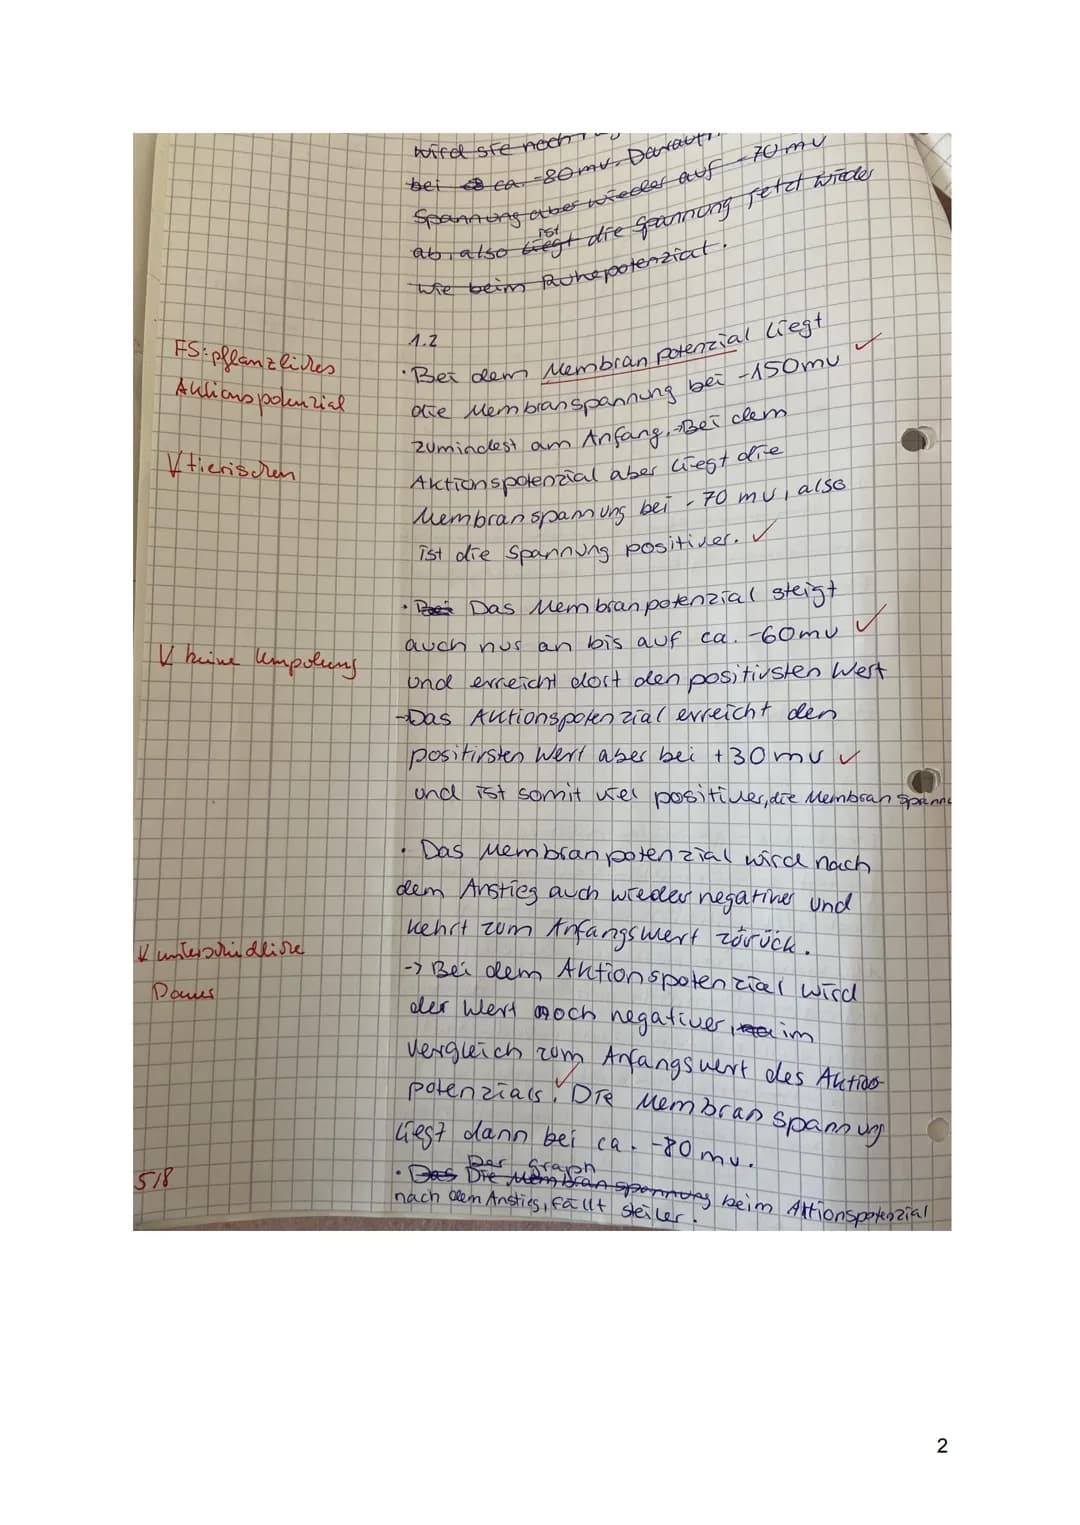 wird sie noch
bei ca. -80mv. Darauf
Spannung aber wieder auf -70 mv
ist
ab, also liegt die Spannung jetzt wieder
wie beim Ruhepotenzial.
1.2
FS: pflanzliches
Aktionspotenzial
· Bei dem Membranpotenzial liegt
die Membranspannung bei -150mv ✓
zumindest am Anfang. → Bei dem
V tierischen
Aktionspotenzial aber liegt die
Membranspannung bei - 70 mv, also
ist die Spannung positiver. ✓
· Bei Das Membranpotenzial steigt
auch nur an bis auf ca. -60mv ✓
V keine Umpolung
und erreicht dort den positivsten Wert
→Das Aktionspotenzial erreicht den
positivsten Wert aber bei +30mv ✓
und ist somit viel positiver, die Membran spann
· Das Membranpotenzial wird nach
dem Anstieg auch wieder negativer und
kehrt zum Anfangswert zurück.
V unterschiedliche
Dauer
-> Bei dem Aktionspotenzial wird
der Wert noch negativer, im
Vergleich zum Anfangswert des Aktions-
potenzials. ✓ Die Membranspannung
liegt dann bei ca. -80mv.
5/8
Der Graph
· Das Die Membranspannung beim Aktionspotenzial
nach dem Anstieg, fällt steiler.
2